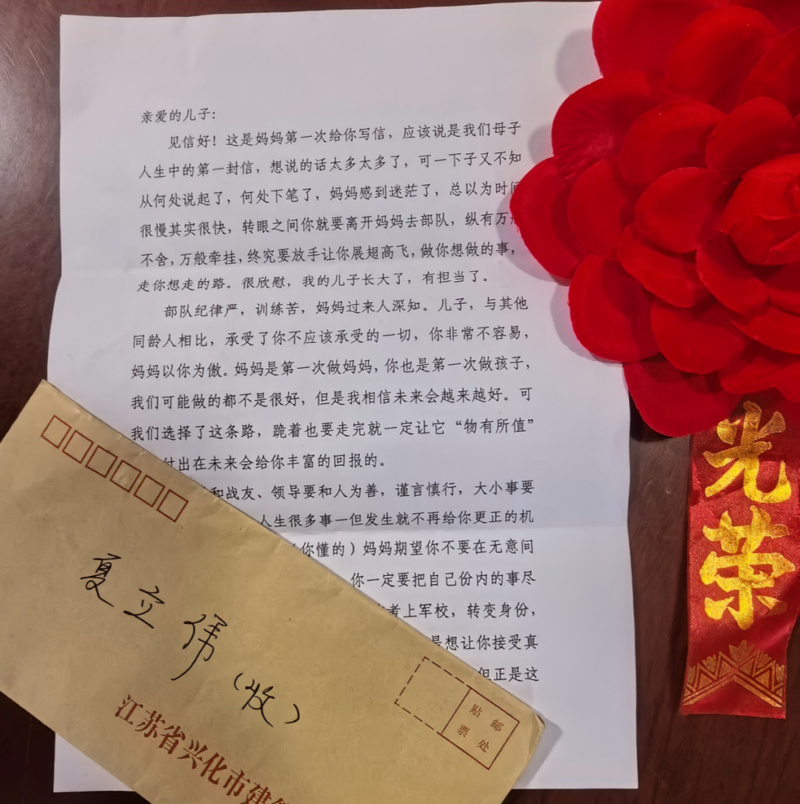 亲爱的儿子：
见信好！这是妈妈第一次给你写信，应该说是我们母子
人生中的第一封信，想说的话太多太多了，可一下子又不知
从何处说起了，何处下笔了，妈妈感到迷茫了，总以为时间
很慢其实很快，转眼之间你就要离开妈妈去部队，纵有万
不舍，万般牵挂，终究要放手让你展翅高飞，做你想做的事，
走你想走的路。很欣慰，我的儿子长大了，有担当了。
部队纪律严，训练苦，妈妈过来人深知。儿子，与其他
同龄人相比，承受了你不应该承受的一切，你非常不容易，
妈妈以你为傲。妈妈是第一次做妈妈，你也是第一次做孩子，
我们可能做的都不是很好，但是我相信未来会越来越好。可
我们选择了这条路，跪着也要走完就一定让它“物有所值”
付出在未来会给你丰富的回报的。
和战友、领导要和人为善，谨言慎行，大小事要
人生很多事一但发生就不再给你更正的机
你懂的）妈妈期望你不要在无意间
你一定要把自己份内的事尽
考上军校，转变身份，
是想让你接受真
但正是这
夏立伟（收）
贴邮
票处
江苏省兴化市建
光荣